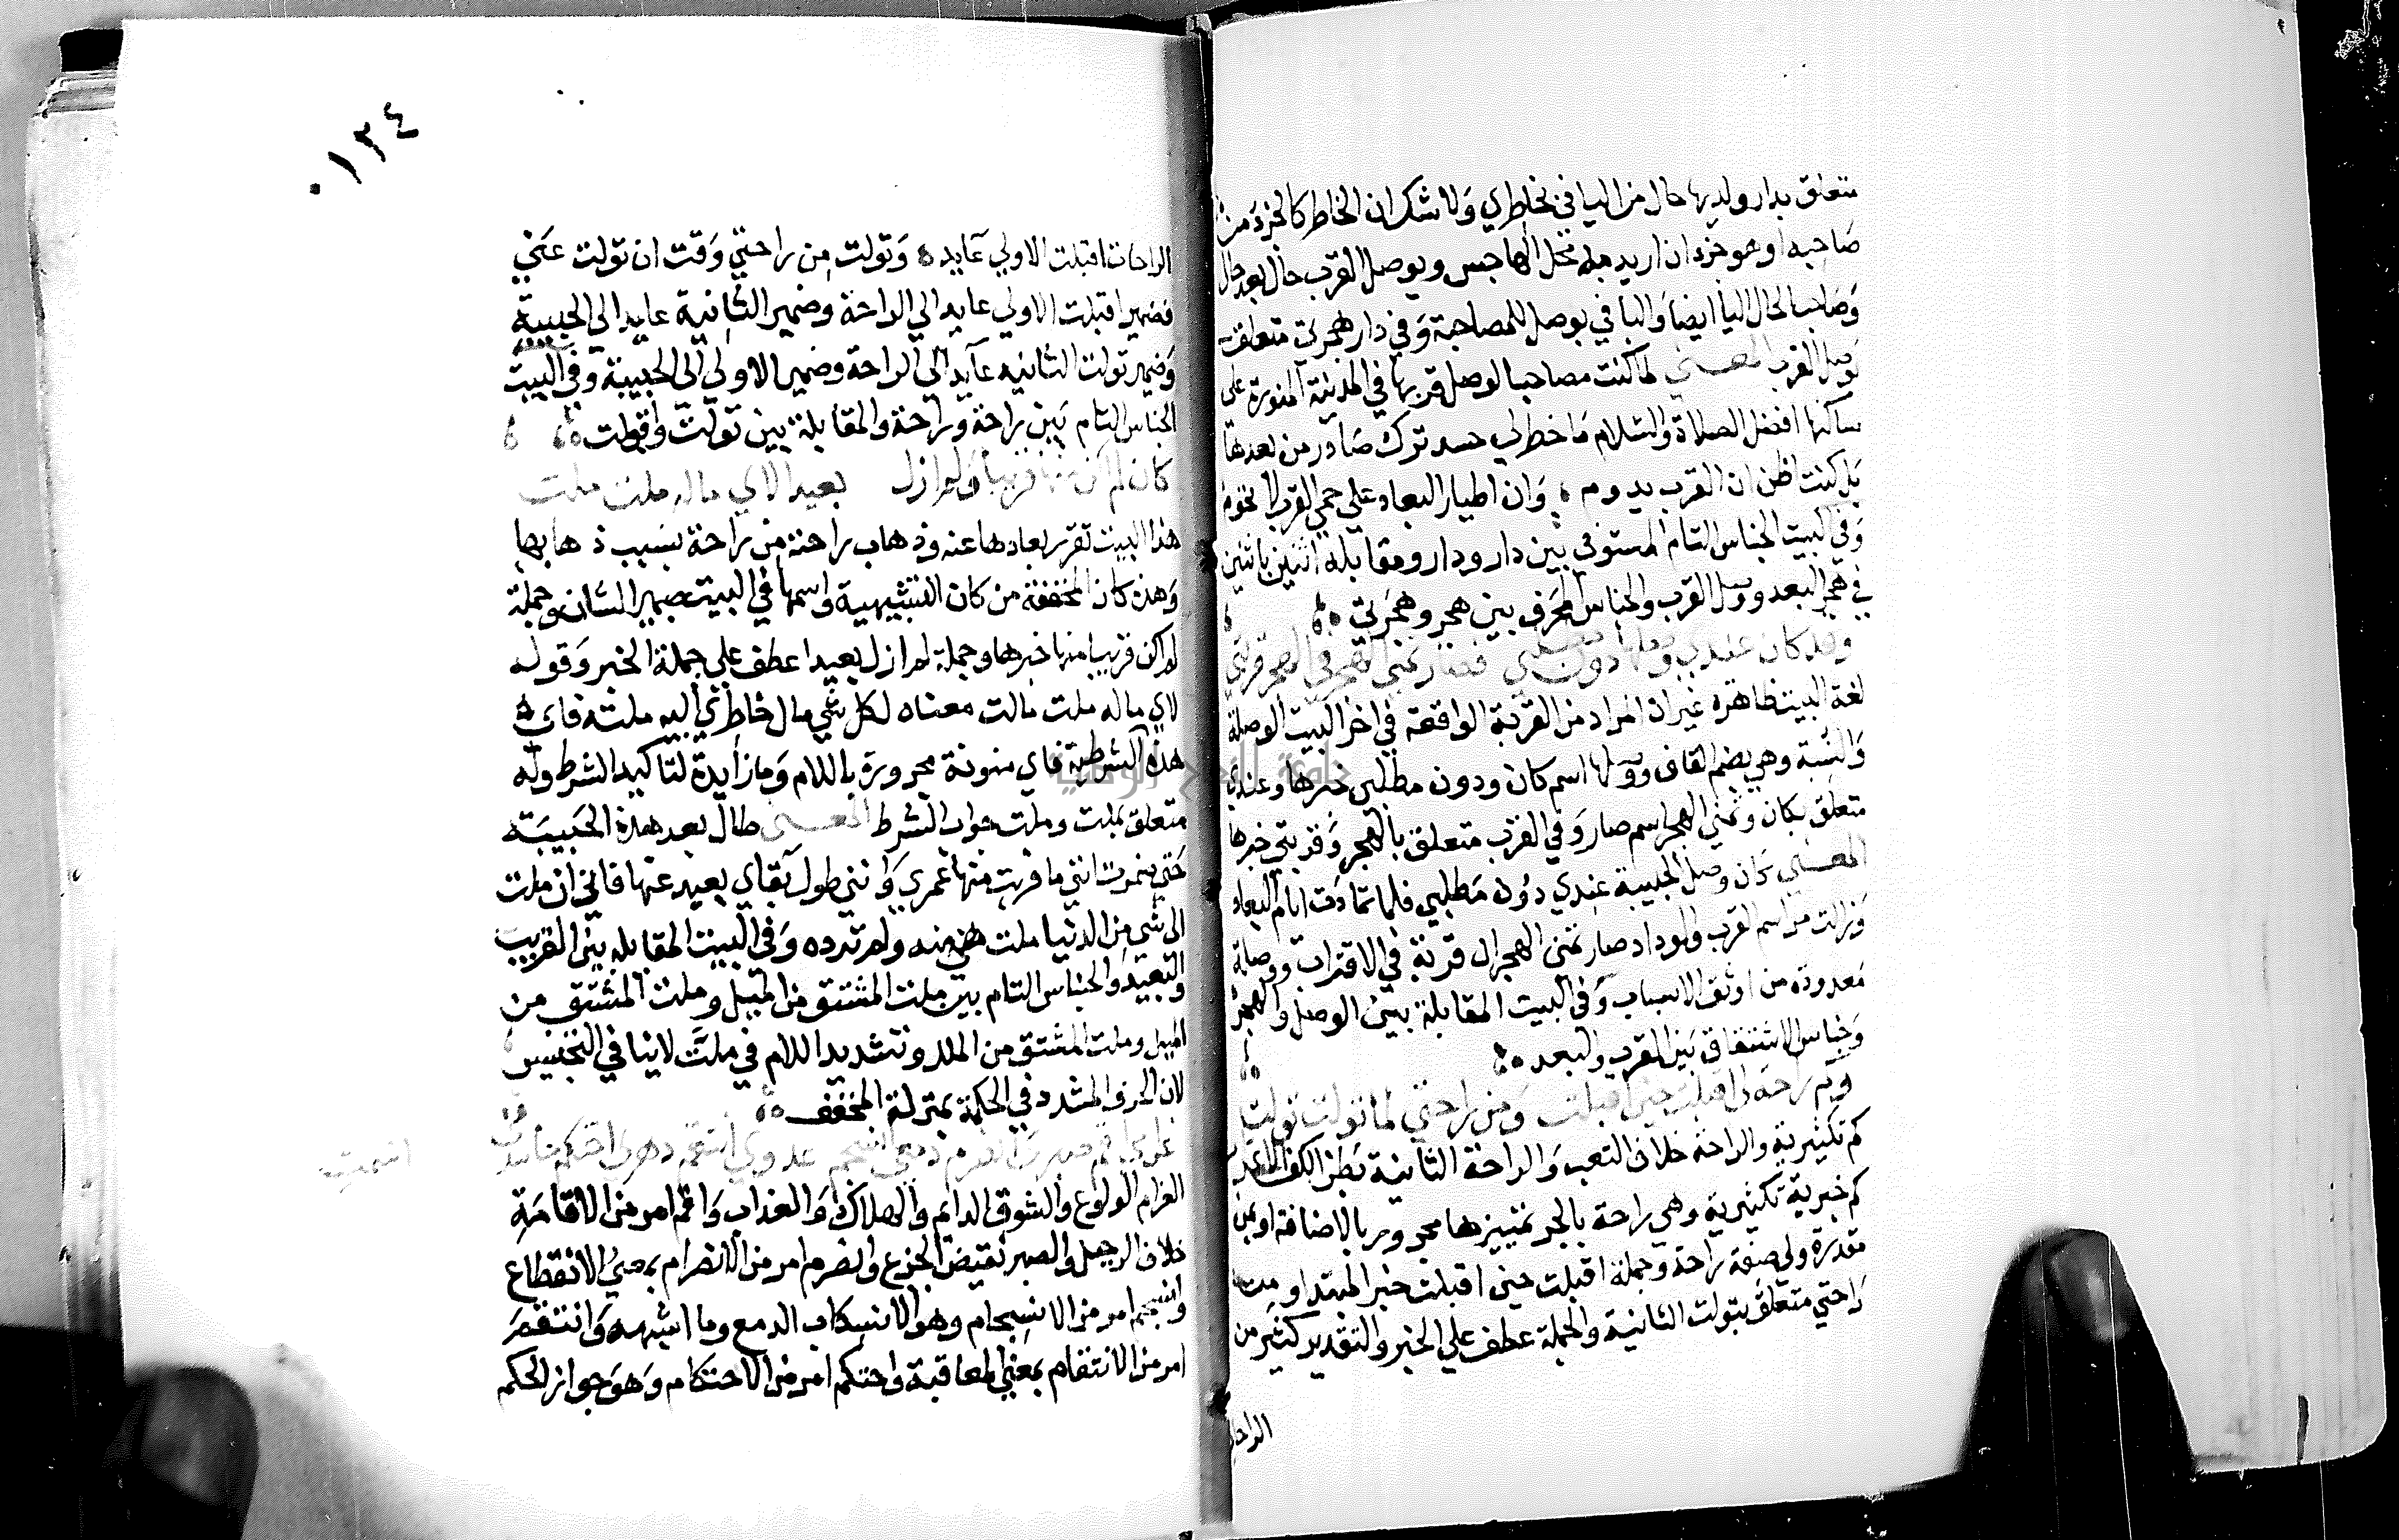 متعلق بدار ولديها حال من اليا في بخاطري ولا شك ان الخاطر كالجزء من
صاحبه او هو جزء ان اريد به محل الهاجس وبوصل القرب حال بعد حال
وصاحب الحال اليا ايضا والبا في بوصل للمصاحبة وفي دار هجرتي متعلق
بوصل القرب المعنى لما كنت مصاحبا لوصل قربها في المدينة المنورة على
ساكنها افضل الصلاة والسلام ما خطر لي حسد ترك صادر من بعدها
بل كنت اظن ان القرب يدوم وان اطيار البعاد على حمى القرب لا تحوم
وفي البيت الجناس التام المستوفي بين دار ودار ومقابلة اثنين باثنين
في هجر البعد ووصل القرب والجناس المحرف بين هجر وهجرتي
وقد كان عندي وصلها دون مطلبي فصار تمني الهجر في القرب قربتي
لغة البيت ظاهرة غير ان المراد من القربة الواقعة في اخر البيت الوصلة
والنسبة وهي بضم القاف ووصلها اسم كان ودون مطلبي خبرها وعندي
متعلق بكان وتمني الهجر اسم صار وفي القرب متعلق بالهجر وقربتي خبرها
المعنى كان وصل الحبيبة عندي دون مطلبي فلما تمادت ايام البعاد
وزالت مراسم القرب والوداد صار تمني الهجر لي قربة في الاقتراب ووصلة
معدودة من اوثق الاسباب وفي البيت المقابلة بين الوصل والهجر
وجناس الاشتقاق بين القرب والبعد
وكم راحة لي اقبلت حين اقبلت ومن راحتي لما تولت تولت
كم تكثيرية والراحة خلاف التعب والراحة الثانية بطن الكف
كم خبرية تكثيرية وهي راحة بالجر تمييزها مجرور بالاضافة او بمن
مقدرة ولي صفة راحة وجملة اقبلت حين اقبلت خبر المبتدا ومن
راحتي متعلق بتولت الثانية والجملة عطف علي الخبر والتقدير كثير من
الراحات
١٣٤
الراحات اقبلت الاولي عايدة وتولت من راحتي وقت ان تولت عني
فضمير اقبلت الاولي عايد الي الراحة وضمير الثانية عايد الي الحبيبة
وضمير تولت الثانيه عايد الي الراحة وضمير الاولي الي الحبيبة وفي البيت
الجناس التام بين راحة وراحة والمقابلة بين تولت واقبلت
كان لم اكن منها قريبا ولم ازل بعيدا لاي ما له ملت ملت
هذا البيت تقرير بعادها عنه وذهاب راحته من راحة بسبب ذهابها
وهذه كان المخففة من كان التشبيهية واسمها في البيت ضمير الشان وجملة
لم اكن قريبا منها خبرها وجملة لم ازل بعيدا عطف علي جملة الخبر وقوله
لاي ما له ملت مالت معناه لكل شي مال خاطري اليه ملته فاي
هذه الشرطية فاي منونة مجرورة باللام وما زايدة لتاكيد الشرط وله
متعلق بملت وملت جواب الشرط المعنى طال بعد هذه الحبيبة
حتي ينموت انني ما قربت منها عمري وانني طول بقاي بعيد عنها فاني ان ملت
الي شي من الدنيا ملت هي منه ولم ترده وفي البيت المقابلة بين القريب
والبعيد والجناس التام بين ملت المشتق من الميل وملت المشتق من
الميل وملت المشتق من الملل وتشديد اللام في ملت لا ينافي التجنيس
لان الحرف المشدد في الحكم بمنزلة المخفف
غرامي اقم صبري انصرم دمعي انسجم عدوي انتقم دهري احتكم حاسدي
اشمت
الغرام الولوع والشوق الدائم والهلاك والعذاب واقم امر من الاقامة
خلاف الرحيل والصبر نقيض الجزع وانصرم امر من الانصرام بمعني الانقطاع
وانسجم امر من الانسجام وهو الانسكاب الدمع وما اشبهه وانتقم
امر من الانتقام بمعني المعاقبة واحتكم امر من الاحتكام وهو جواز الحكم